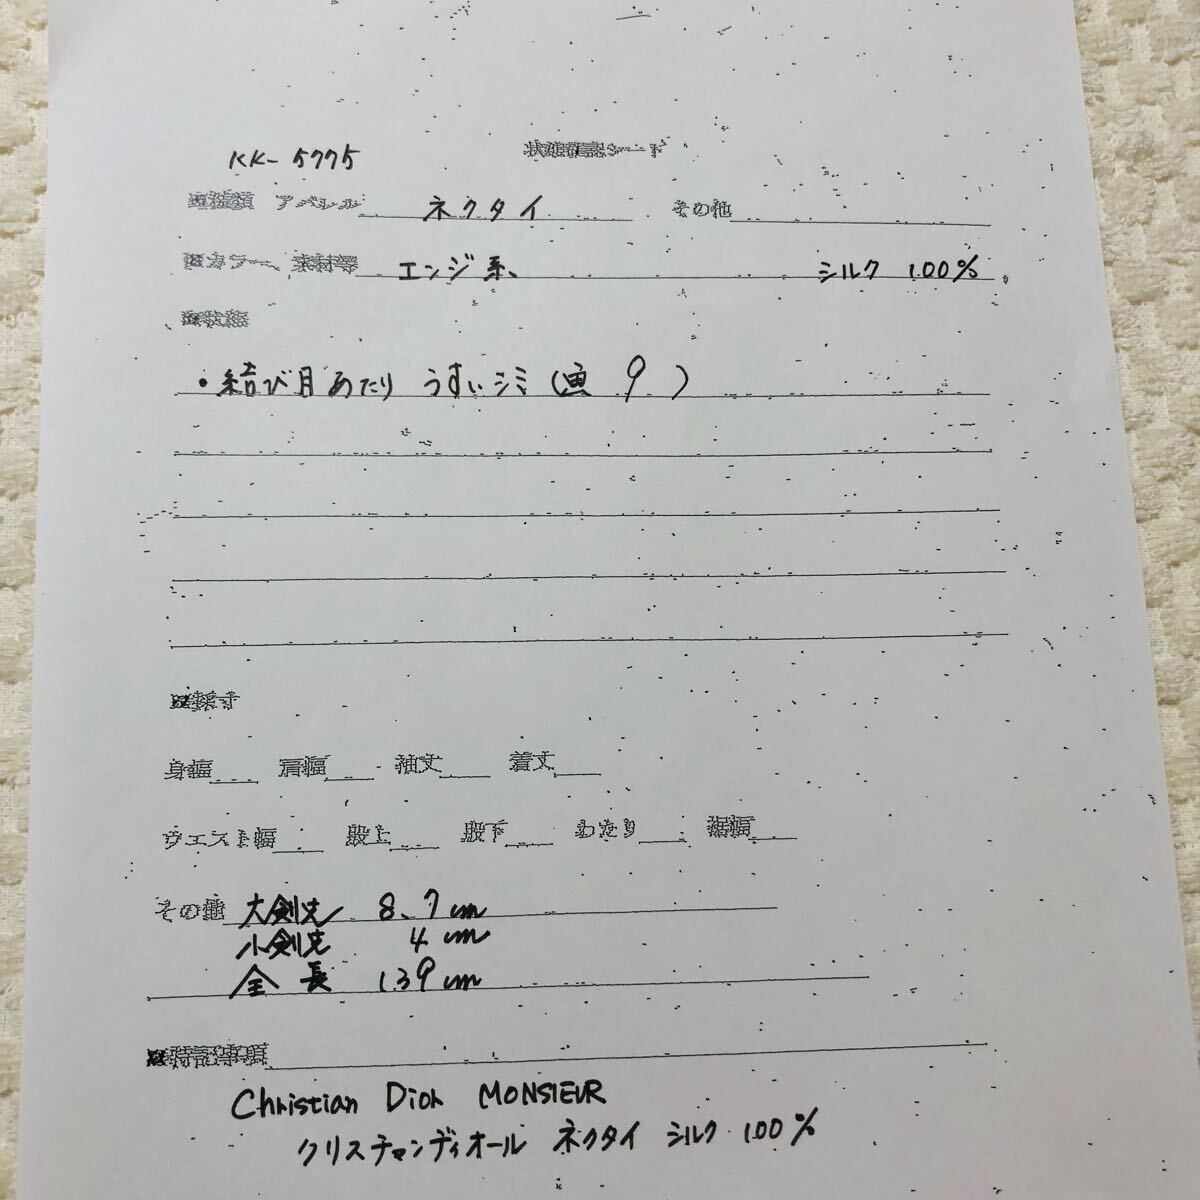 KK-5775 状態確認シート
■種類 アパレル ネクタイ その他
■カラー、素材等 エンジ系、 シルク 100%
■状態
・結び目あたり うすいシミ(画 9 )
■採寸
身幅 肩幅 袖丈 着丈
ウエスト幅 股上 股下 わたり 裾幅
その他 大剣先 8.7cm
小剣先 4cm
全長 139cm
■特記事項
Christian Dior MONSIEUR
クリスチャンディオール ネクタイ シルク 100%